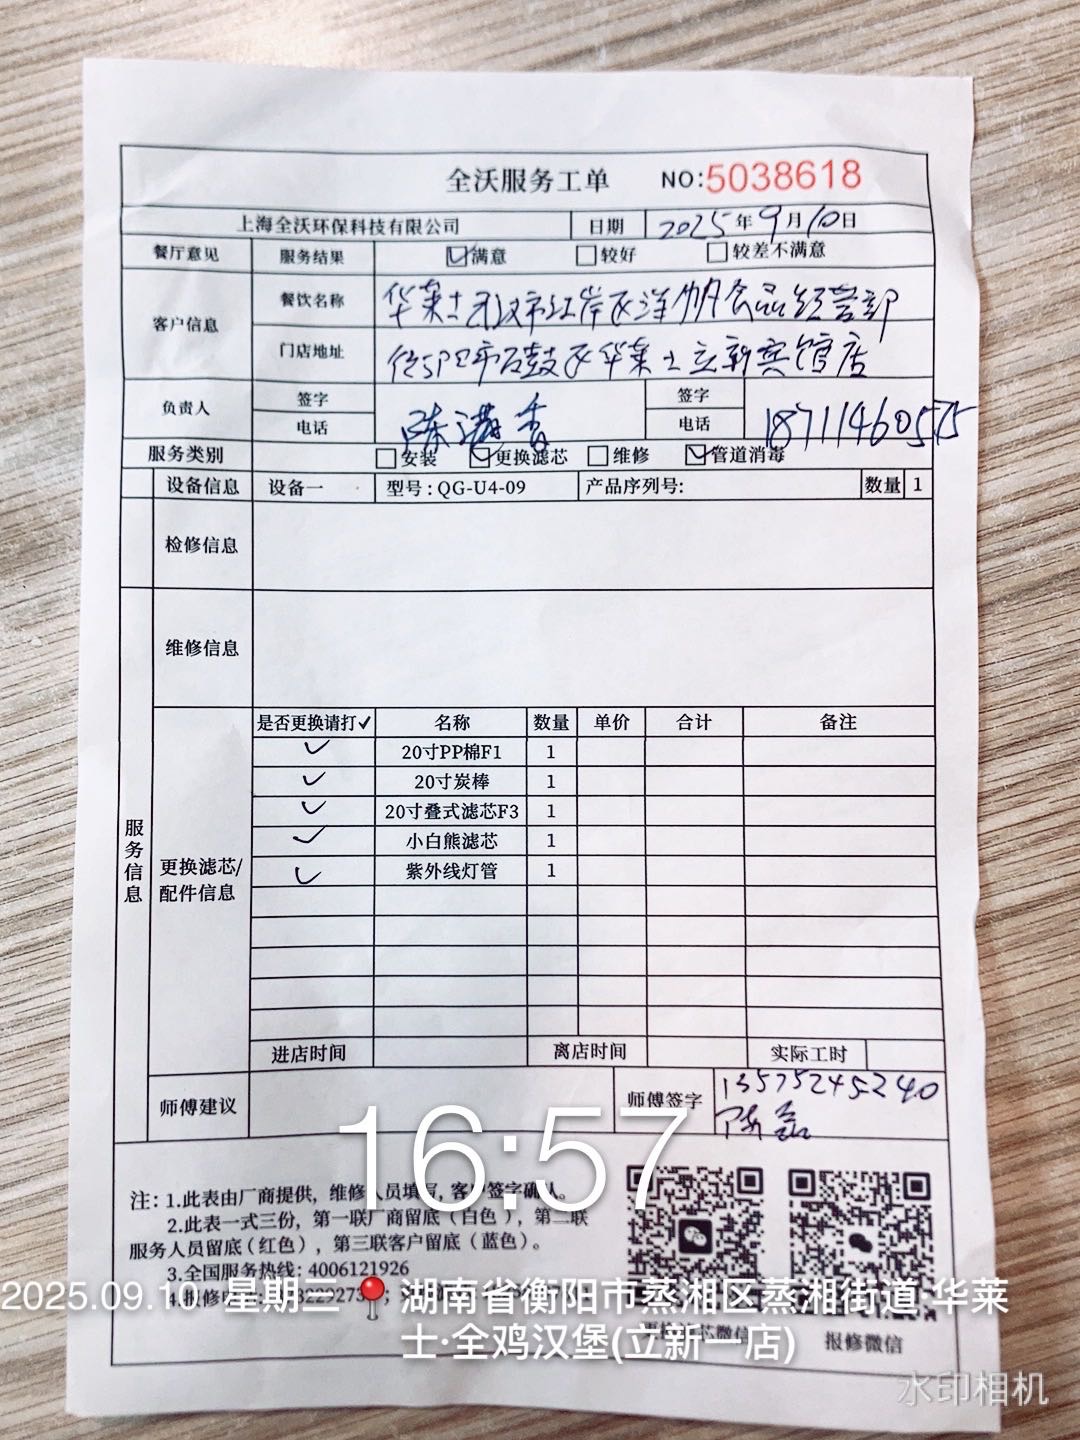 全沃服务工单 NO:5038618
上海全沃环保科技有限公司 日期 2025年9月10日
餐厅意见 服务结果 ☑满意 □较好 □较差不满意
客户信息 餐饮名称 华莱士武汉市江岸区洋帆食品经营部
门店地址 市石鼓区华莱士立新宾馆店
负责人 签字 陈满香 签字
电话 电话 18711460575
服务类别 □安装 ☑更换滤芯 □维修 ☑管道消毒
设备信息 设备一 型号:QG-U4-09 产品序列号: 数量 1
检修信息
维修信息
服务信息
更换滤芯/
配件信息
是否更换请打✓ 名称 数量 单价 合计 备注
✓ 20寸PP棉F1 1
✓ 20寸炭棒 1
✓ 20寸叠式滤芯F3 1
✓ 小白熊滤芯 1
✓ 紫外线灯管 1
进店时间 离店时间 实际工时
师傅建议 师傅签字 13575245240
陈磊
16:57
注: 1.此表由厂商提供, 维修人员填写, 客户签字确认。
2.此表一式三份, 第一联厂商留底(白色), 第二联
服务人员留底(红色), 第三联客户留底(蓝色)。
3.全国服务热线: 4006121926
4.报修
报修微信
2025.09.10 星期三 湖南省衡阳市蒸湘区蒸湘街道 华莱
士·全鸡汉堡(立新一店)
水印相机